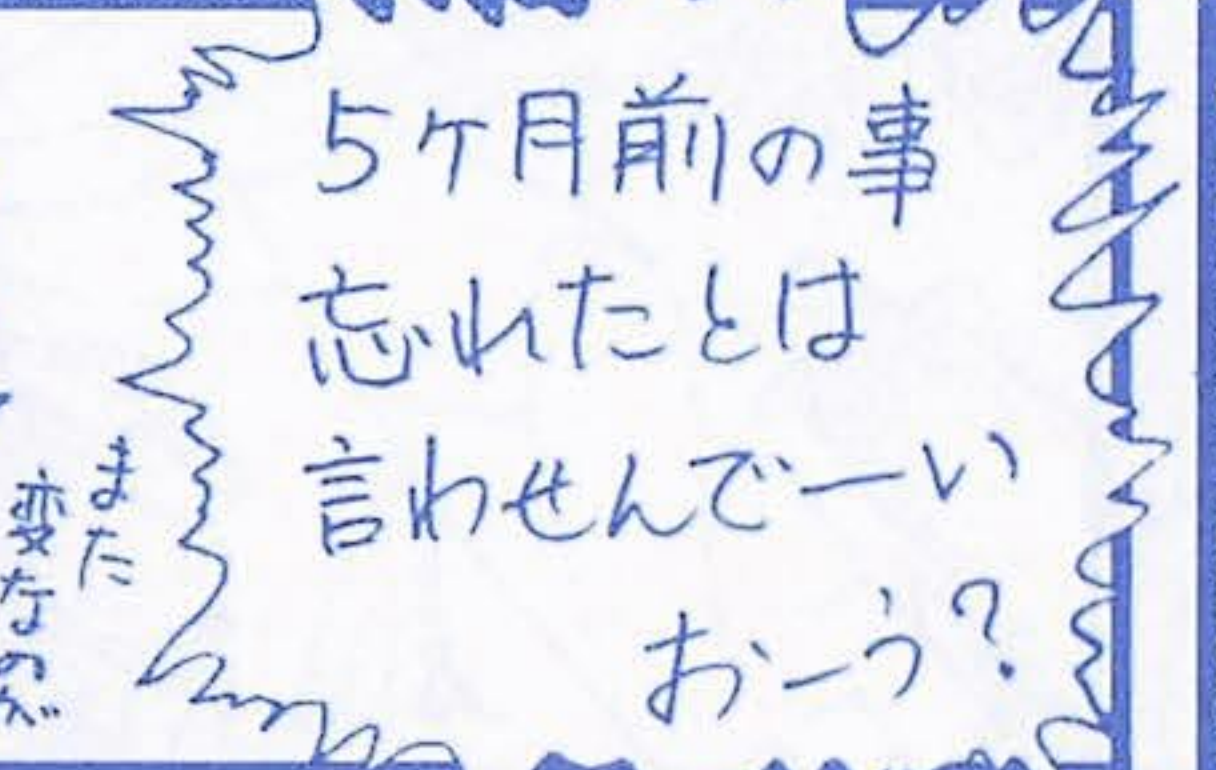 5ケ月前の事
忘れたとは
言わせんでーい
おーう?
また
変なのが